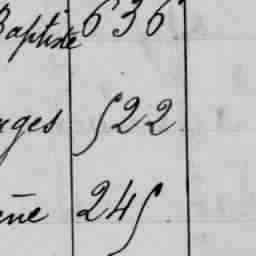 Baptiste 636
rges 522
ène 245